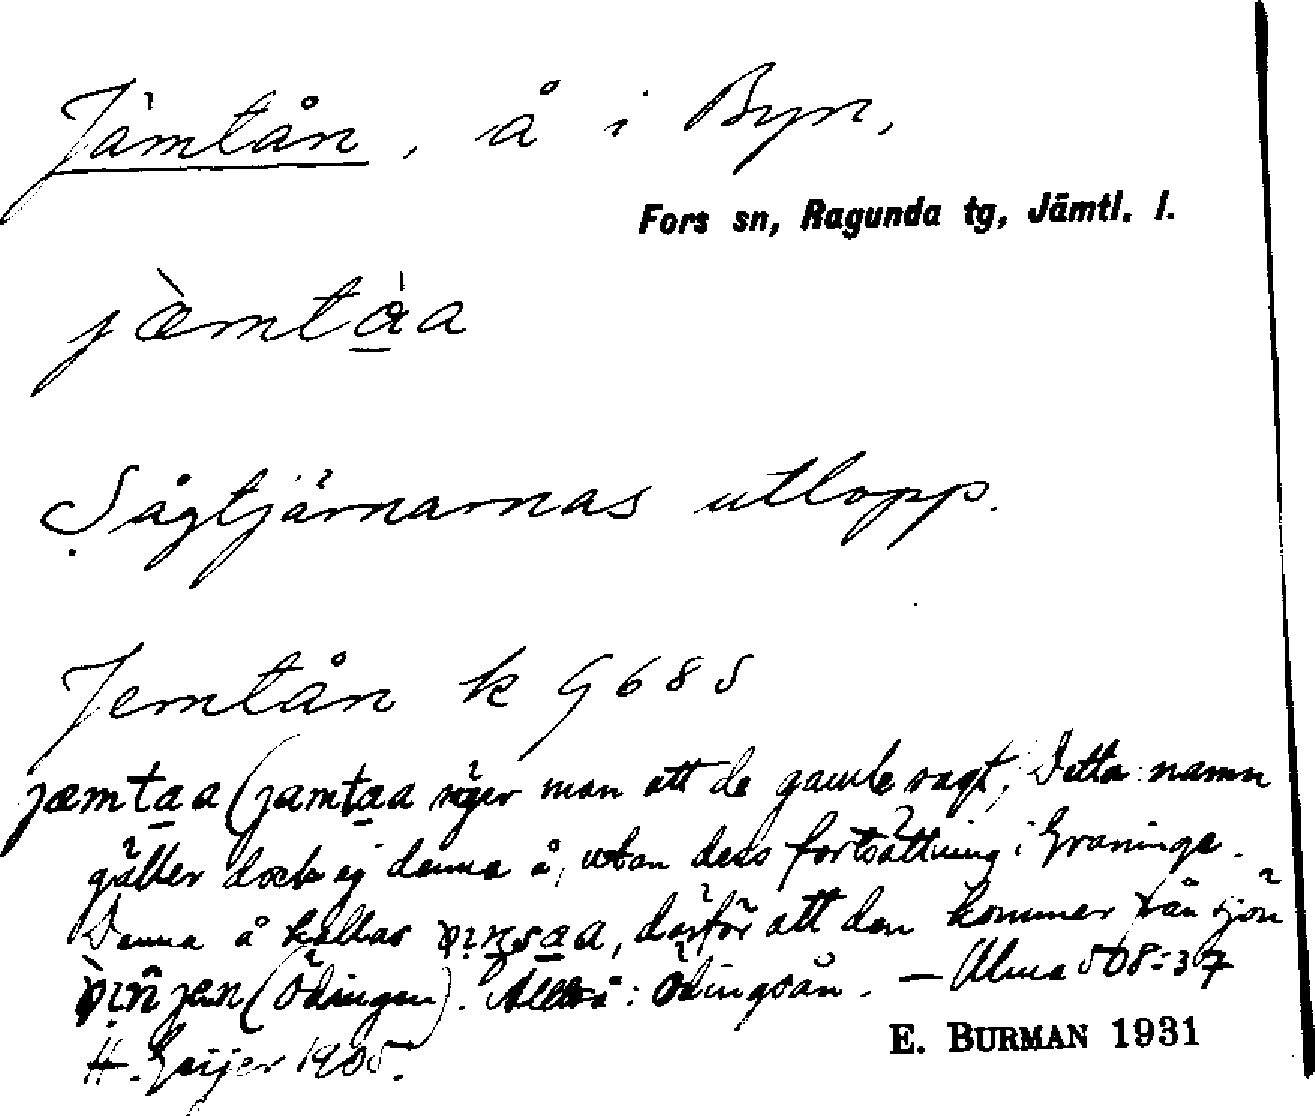 Jämtån, å i Byn,
Fors sn, Ragunda tg, Jämtl. l.
jæ̀mtå̠̀a
Sågtjärnarnas utlopp.
Jemtån k G 68 S
jæmta̠a (jamta̠a säger man att de gamle sagt, Detta namn
gäller dock ej denna å, utan dess fortsättning i Graninge.
Denna å kallas a, därför att den kommer från sjön
(Ödingen). Alltså: Ödingsån. — Alma 508:37
H. Geijer 1905.
E. BURMAN 1931